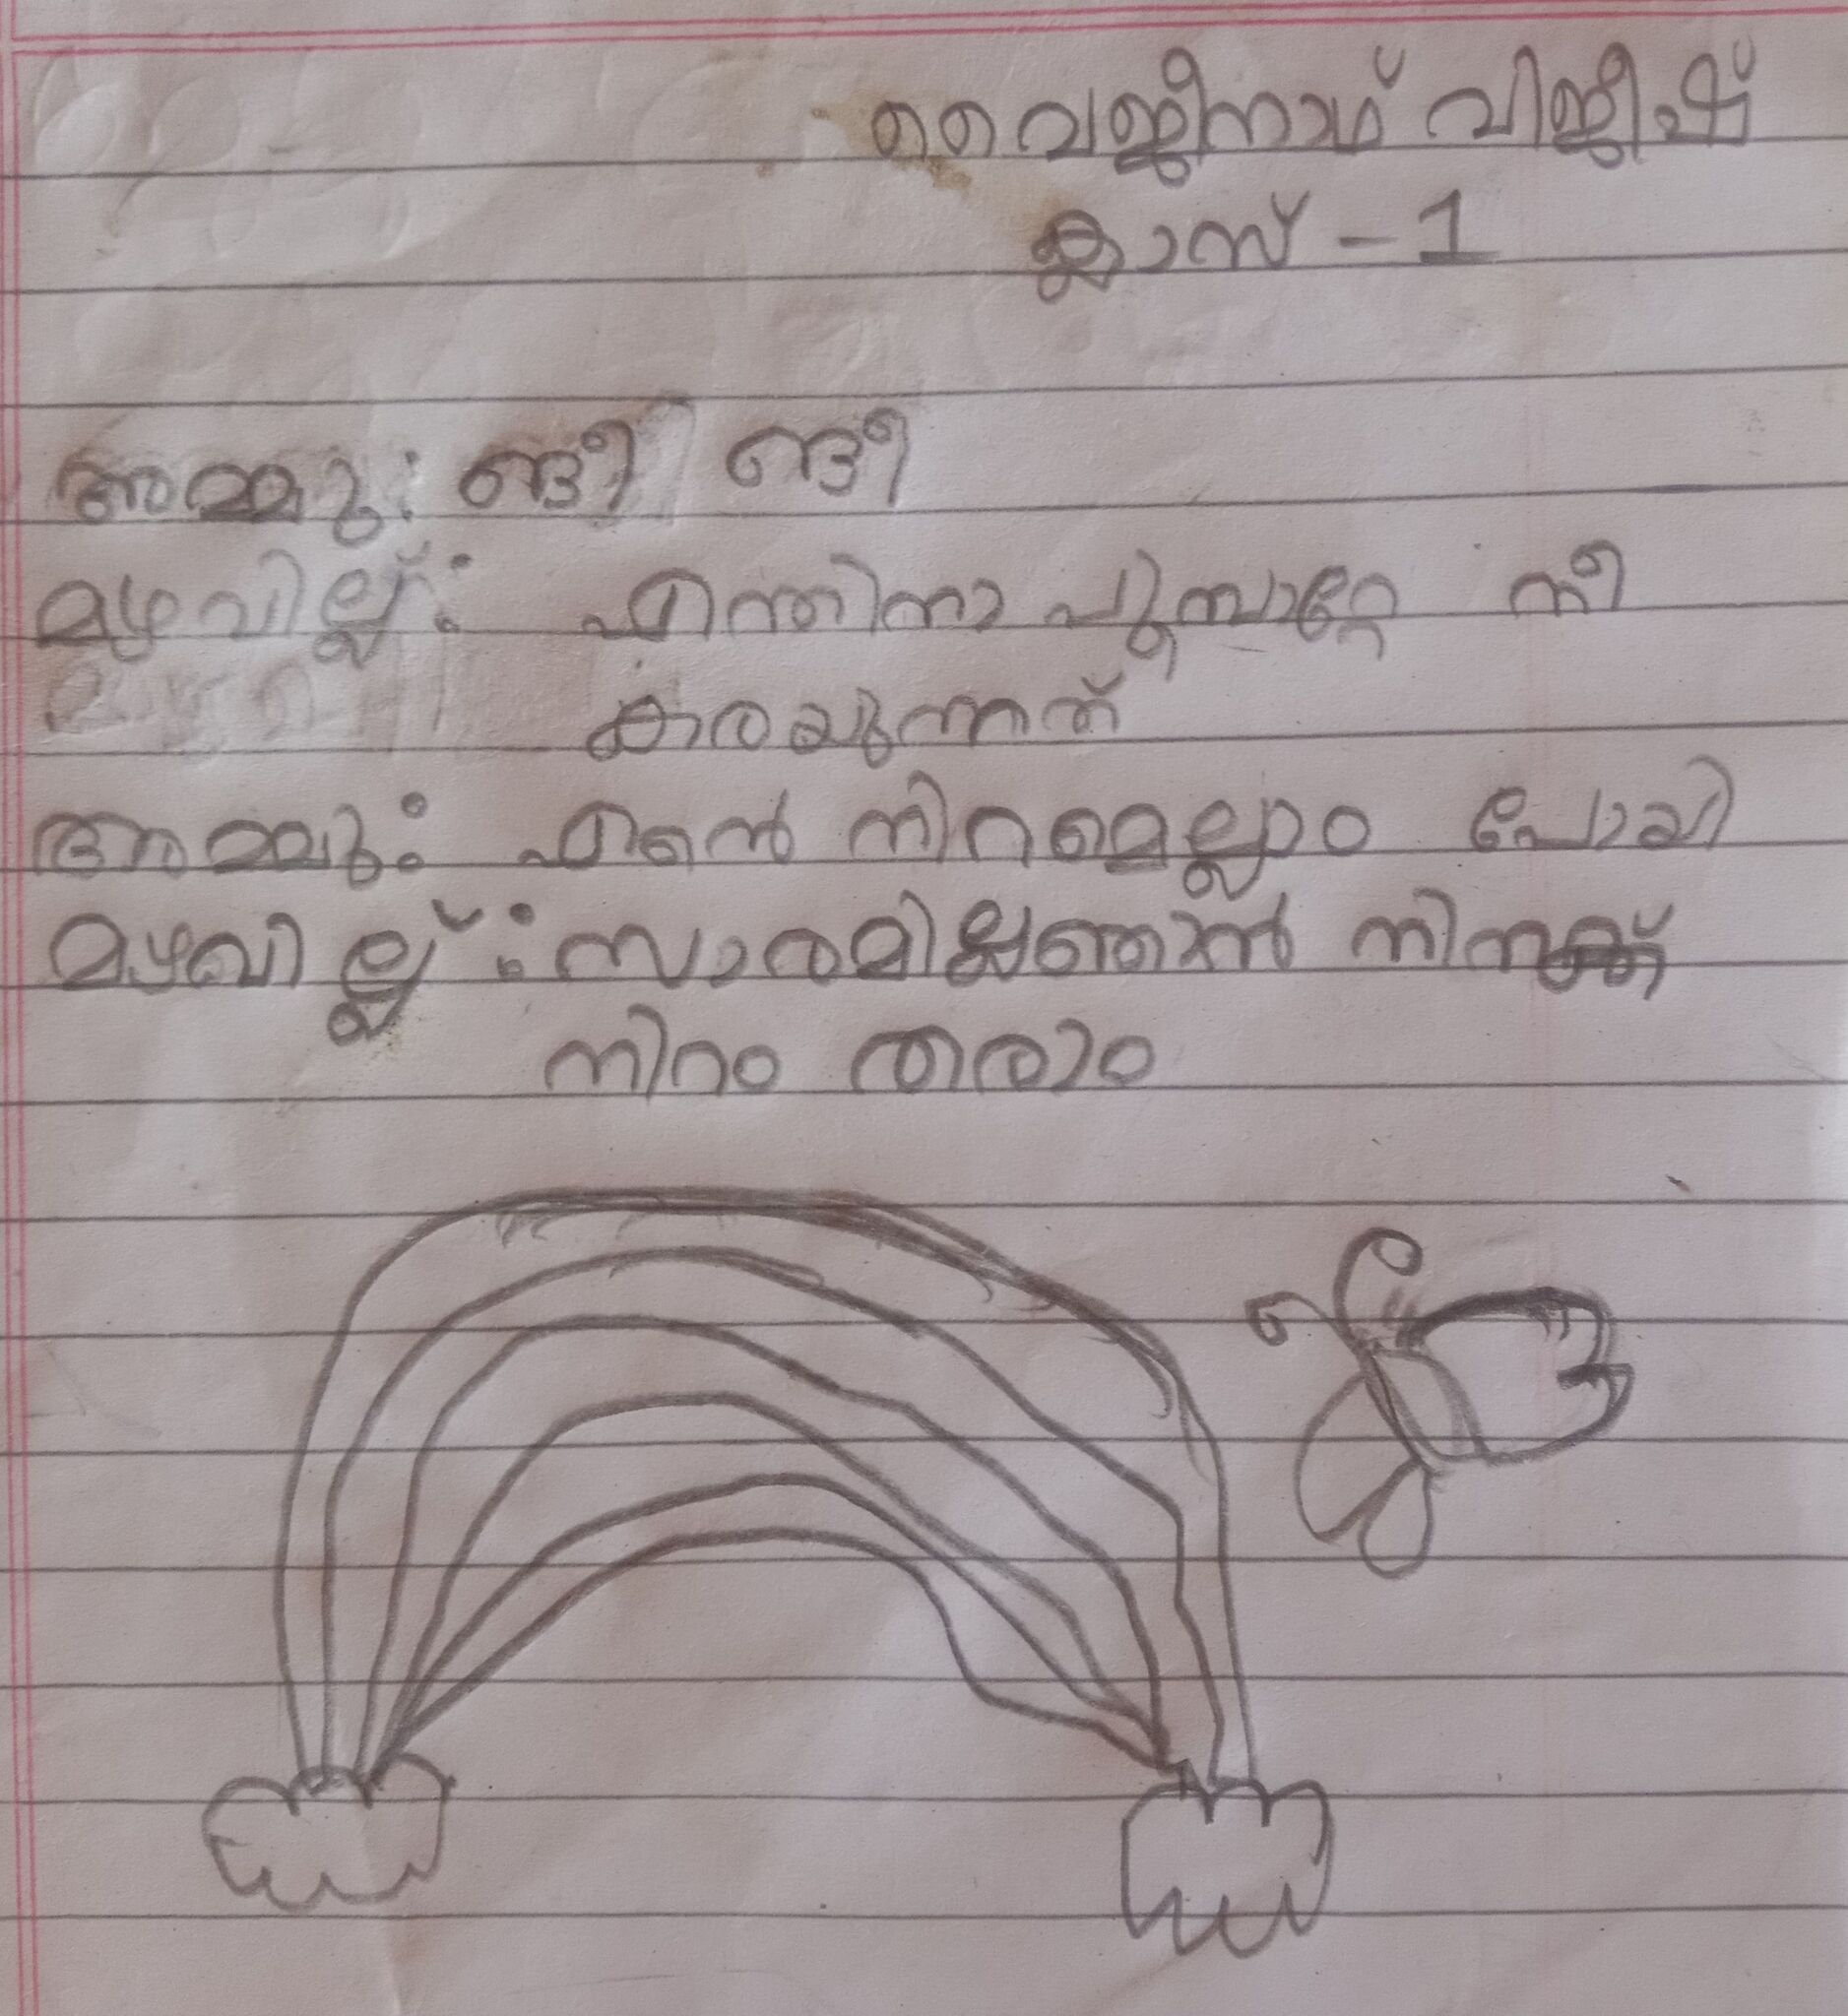 വൈജീനാഥ് വിജീഷ്
ക്ലാസ് - 1
അമ്മു: ങീ ങീ
മഴവില്ല്: എന്തിനാ പൂമ്പാറ്റേ നീ
കരയുന്നത്
അമ്മു: എൻെ നിറമെല്ലാം പോയി
മഴവില്ല്: സാരമില്ല ഞാൻ നിനക്ക്
നിറം തരാം